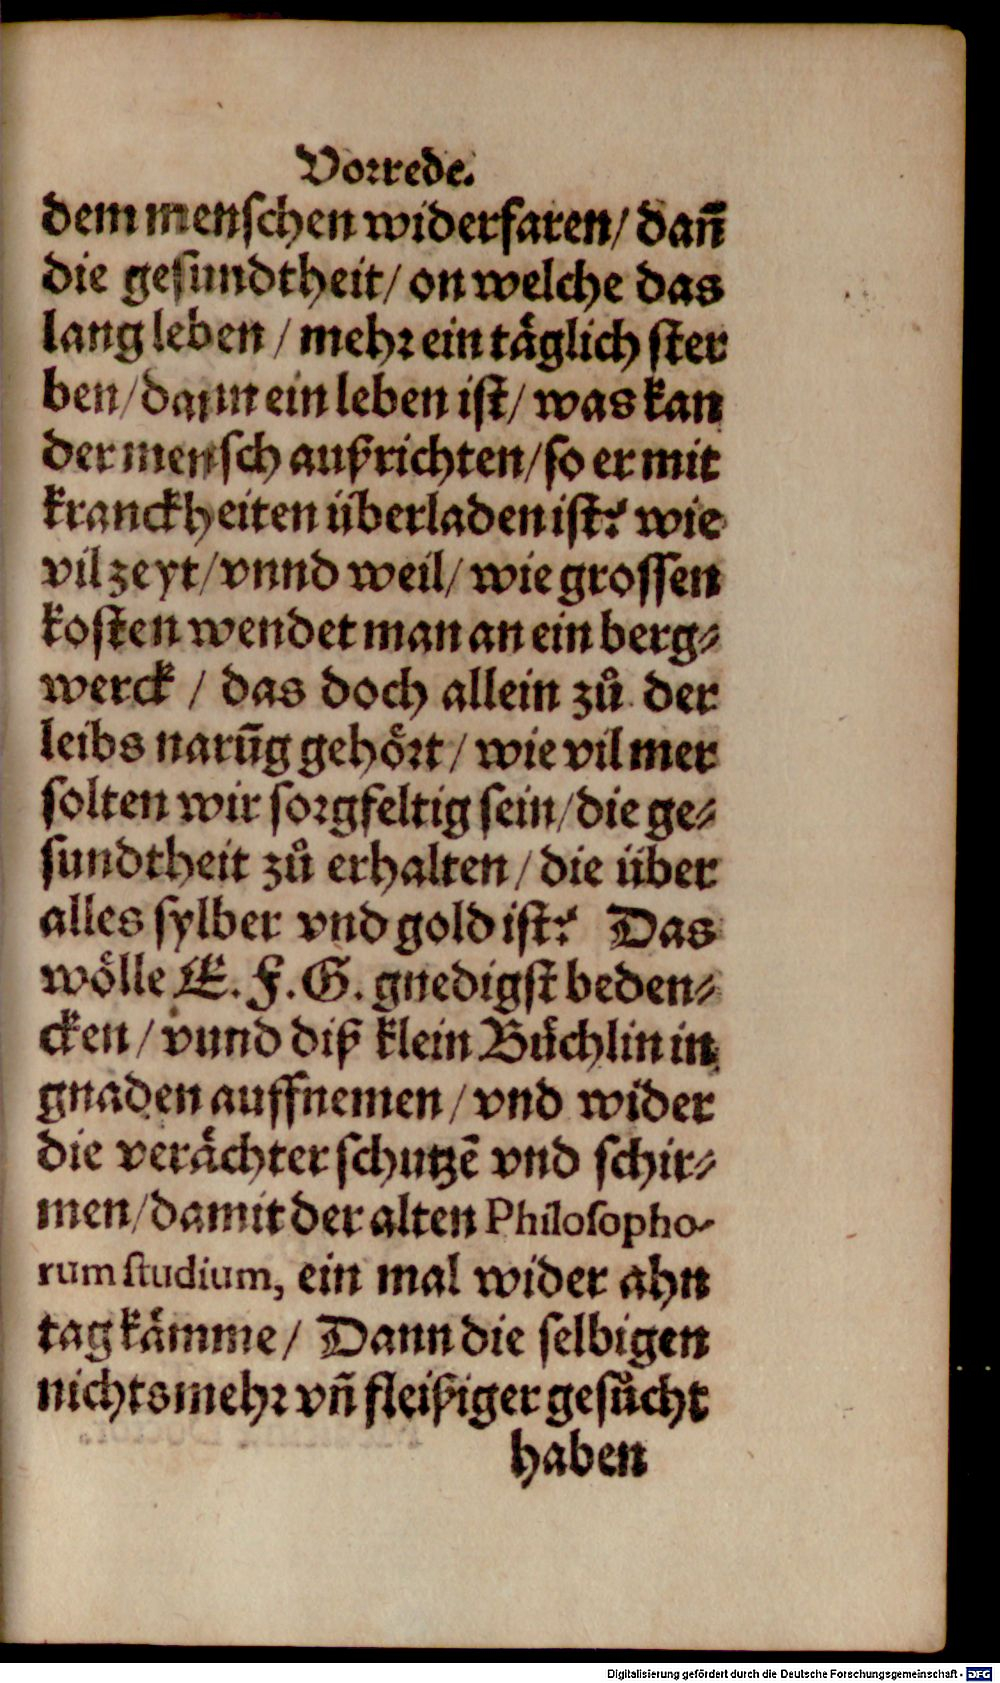 Vorrede.
dem menschen widerfaren/ dañ
die gesundtheit/ on welche das
lang leben / mehr ein täglich ster
ben/dann ein leben ist/ was kan
der mensch außrichten/so er mit
kranckheiten überladen ist? wie
vil zeyt/vnnd weil/ wie grossen
kosten wendet man an ein berg⸗
werck / das doch allein zů der
leibs narūg gehört / wie vil mer
solten wir sorgfeltig sein/die ge⸗
sundtheit zů erhalten / die über
alles sylber vnd gold ist? Das
wölle E. F. G. gnedigst beden⸗
cken / vnnd diß klein Büchlin in
gnaden auffnemen / vnd wider
die verächter schutzē vnd schir⸗
men/damit der alten Philosopho-
rum studium, ein mal wider ahn
tag kämme/ Dann die selbigen
nichts mehr vñ fleißiger gesůcht
haben
Digitalisierung gefördert durch die Deutsche Forschungsgemeinschaft - DFG